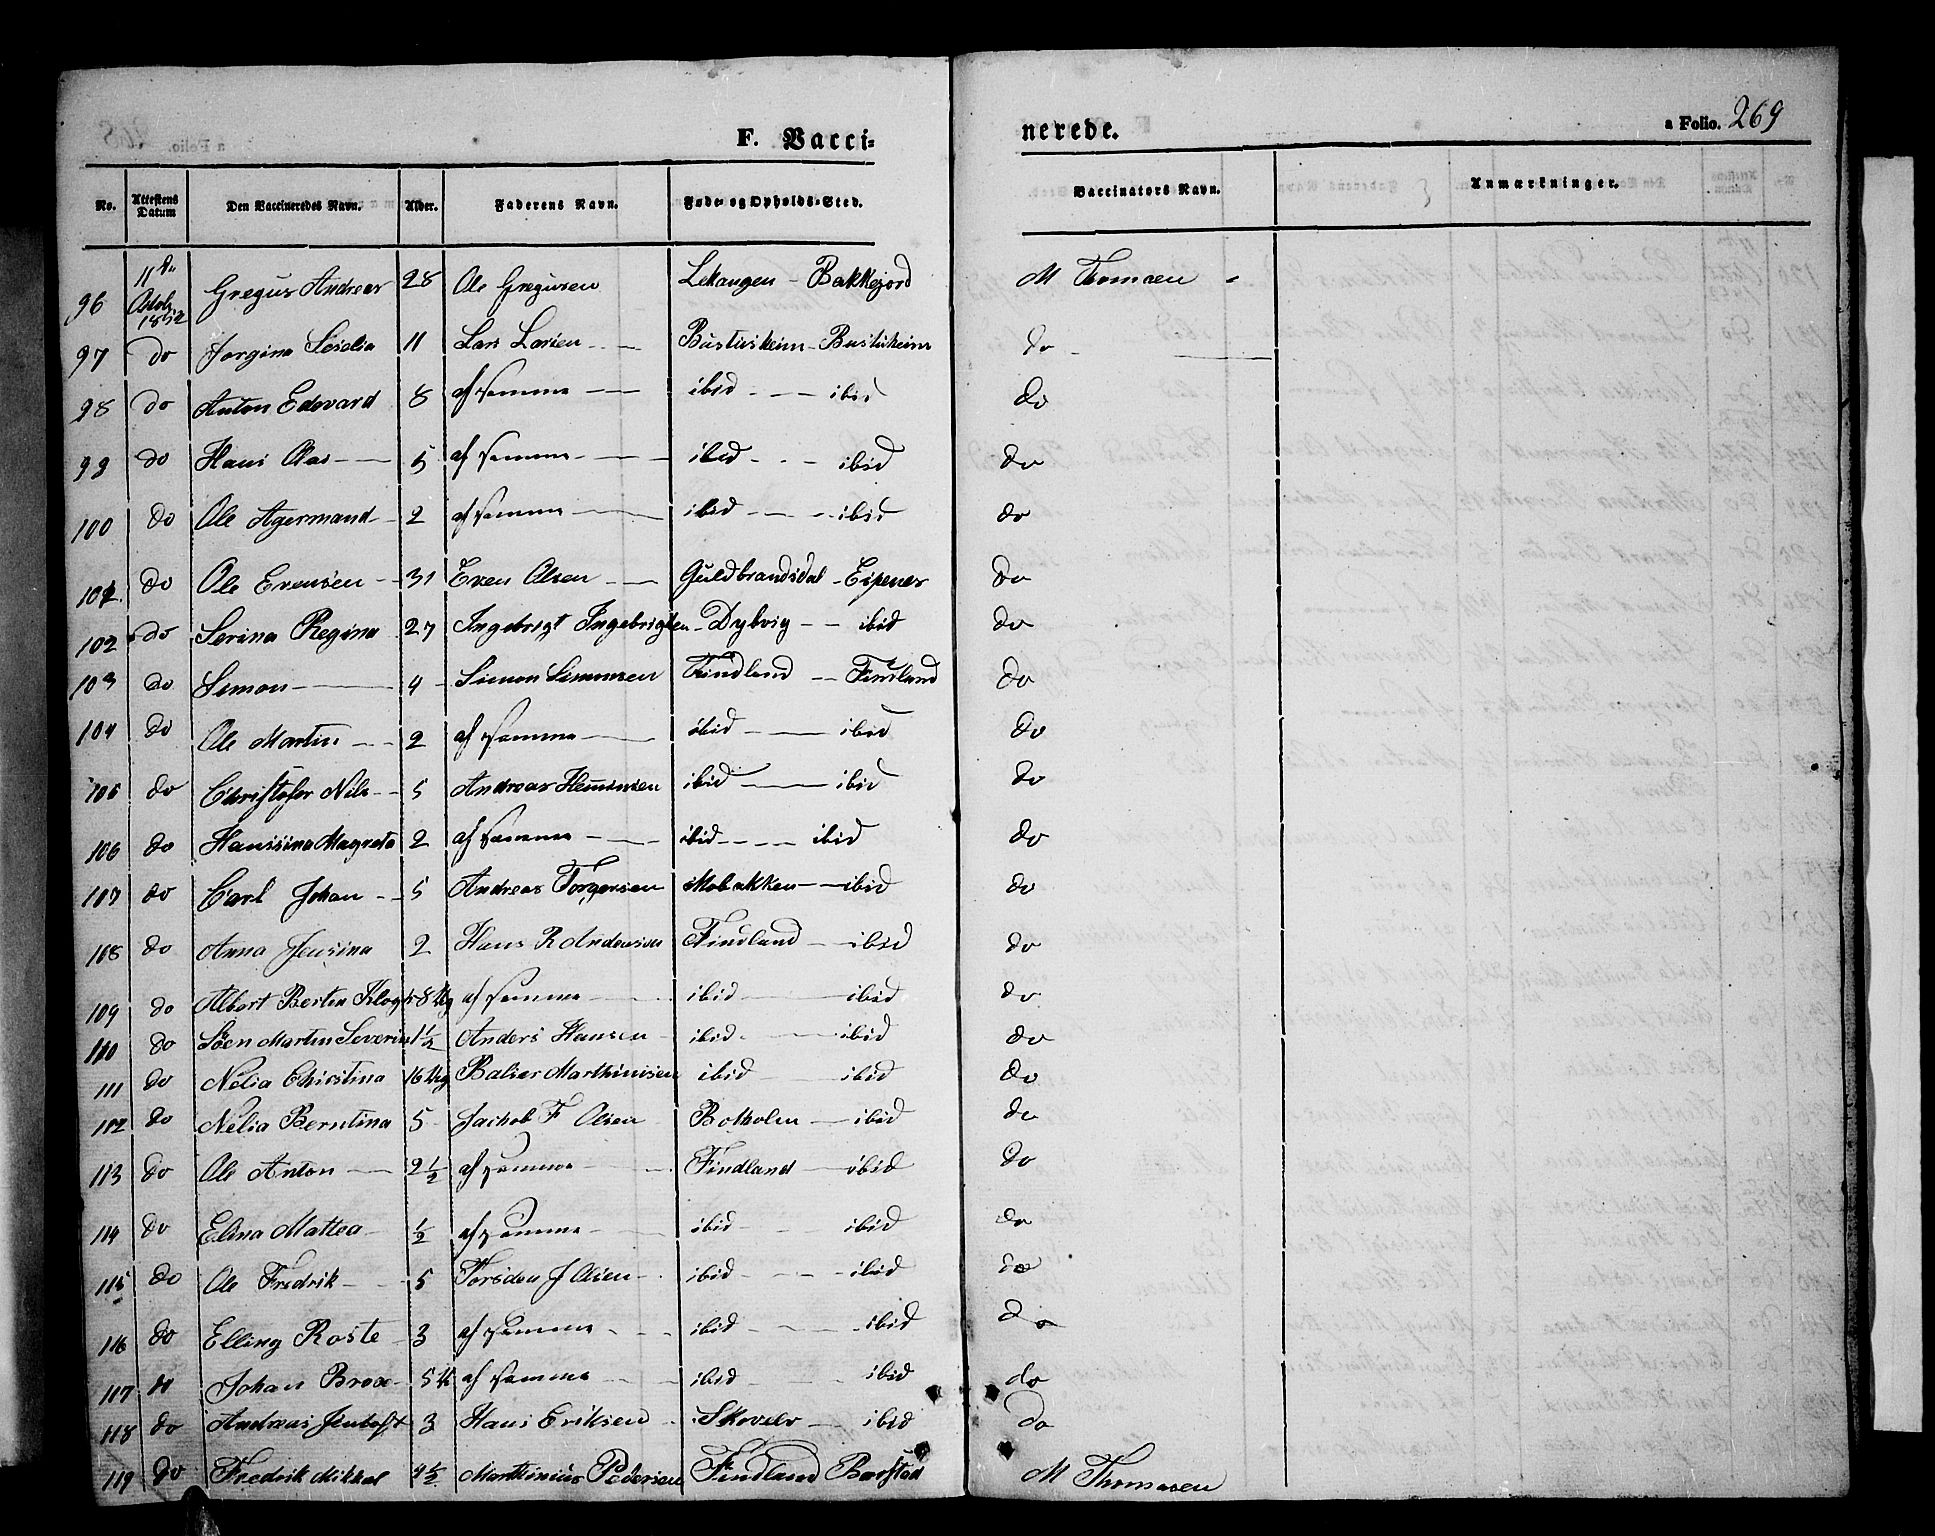 F. Vacci=
nerede.
a Folio. 269
No. Attestens Datum Den Vaccineredes Navn. Alder. Faderens Navn. Føde- og Opholds-Sted. Vaccinators Navn. Anmærkninger.
96 11te Octobr 1852 Gregus Andreas 28 Ole Gregusen Lekangen - Bakkejord M Thomsen
97 do Jorgina Seselia 11 Lars Larsen Bustuskeim - Bustuskeim do
98 do Anton Edevard 8 af samme ibid ibid do
99 do Hans Olai 5 af samme ibid ibid do
100 do Ole Agermand 2 af samme ibid ibid do
101 do Ole Evensen 31 Even Olsen Guldbrandsdal - Espenes do
102 do Serina Regina 27 Ingebrigt Ingebrigtsen Dybvig ibid do
103 do Simon 4 Simon Simonsen Findland Findland do
104 do Ole Martin 2 af samme ibid ibid do
105 do Christofer Nils 5 Andreas Hemmisen ibid ibid do
106 do Hanssina Magreta 2 af samme ibid ibid do
107 do Carl Johan 5 Andreas Torgersen Mobakken ibid do
108 do Anna Jensina 2 Hans R Andersen Findland ibid do
109 do Albert Bertin Klog 8 Ug af samme ibid ibid do
110 do Søen Martin Severin 1½ Anders Hansen ibid ibid do
111 do Nelia Christina 16 Ug Balser Marthinisen ibid ibid do
112 do Nelia Berntina 5 Jachob F Olsen Botholm ibid do
113 do Ole Anton 2½ af samme Findland ibid do
114 do Elina Mattea ½ af samme ibid ibid do
115 do Ole Fredrik 5 Torsden J Olsen ibid ibid do
116 do Elling Roste 3 af samme ibid ibid do
117 do Johan Brox 5 U af samme ibid ibid do
118 do Andreas Jentoft 3 Hans Eriksen Skovelv ibid do
119 do Fredrik Mikkal 4½ Marthinius Pedersen Findland Barstad M Thomasen